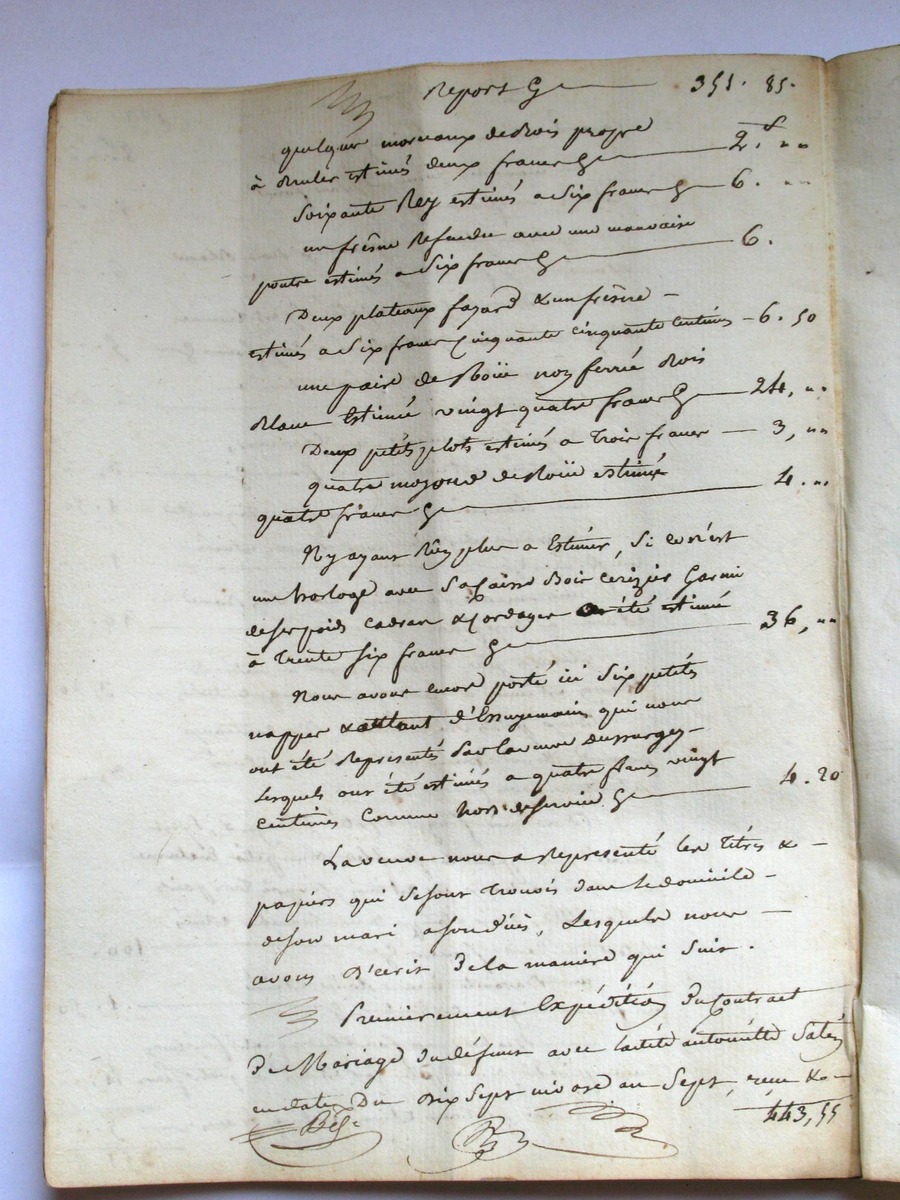 Report 351. 85.
quelques morceaux de Bois propre
à Bruler estimés deux francs 2.f " "
Soixante Rey estimés a Six francs 6. " "
un frêsne Refendu avec une mauvaise
poutre estimés a Six francs 6.
Deux plateaux fayard & un frêsne —
estimés a Six francs Cinquante cinquante Centimes — 6. 50
une paire de Roüe non ferrée Bois
Blanc Estimée vingt quatre francs 24, " "
Deux petits plots estimés a Trois francs — 3, " "
quatre moyeux de Roüe estimés
quatre francs 4. " "
N'y ayant Rien plus a Estimer, Si ce n'est
une horloge avec Sa Caisse Bois cerizier Garni
de ses poids Cadran & Cordages été estimée
à Trente Six francs 36, " "
Nous avons encore porté ici Six petites
nappes & autant d'Essuyemains qui nous
ont été Representés par la veuve Dussurgey —
Lesquels ont été estimés a quatre francs vingt
centimes Comme hors de Service 4. 20
La veuve nous a Representé les Titres & —
papiers qui Se sont Trouvés dans Le domicile —
de Son mari a Son décès, Lesquels nous —
avons D'écrit De la maniere qui Suit.
Premierement Expédition Du Contract
De Mariage du défunt avec ladite antoinette
en datte Du dix Sept nivose an Sept, &
443, 55